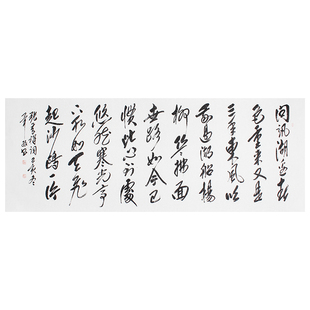 问讯湖边春
色重来又是
三年东风吹
我过湖船杨
柳丝丝拂面
世路如今已
惯此心到处
悠然寒光亭
下水如天飞
起沙鸥一片